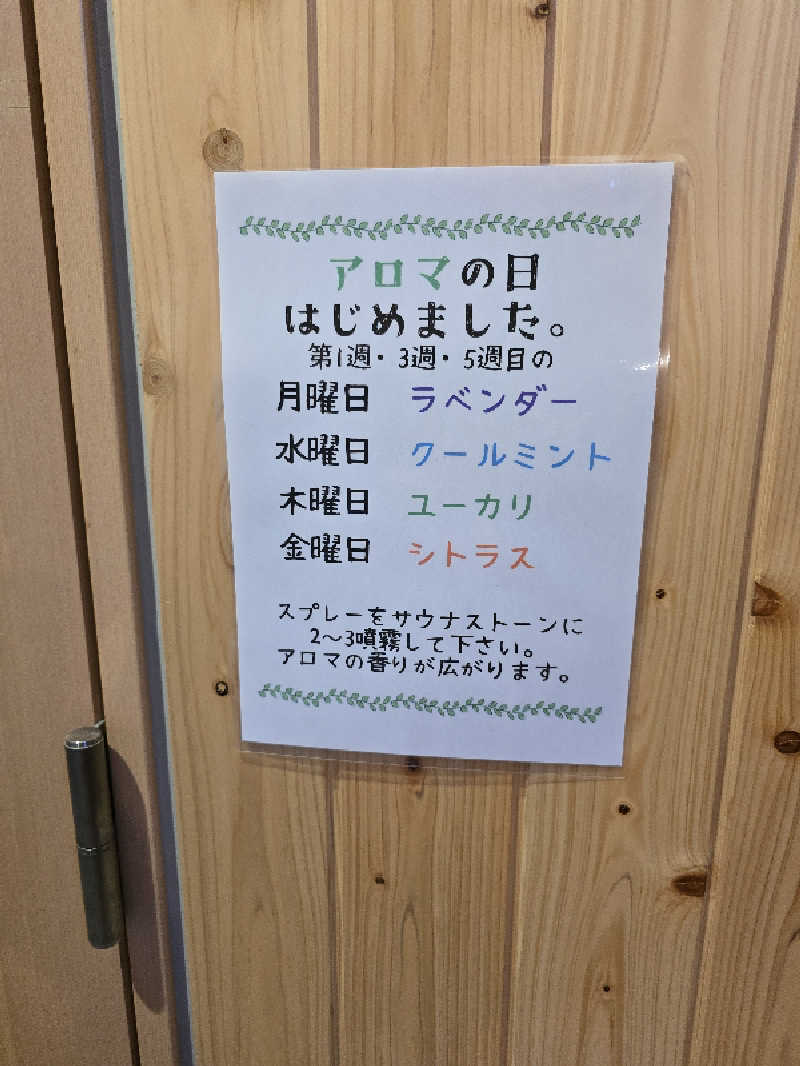 アロマの日
はじめました。
第1週・3週・5週目の
月曜日 ラベンダー
水曜日 クールミント
木曜日 ユーカリ
金曜日 シトラス
スプレーをサウナストーンに
2～3噴霧して下さい。
アロマの香りが広がります。